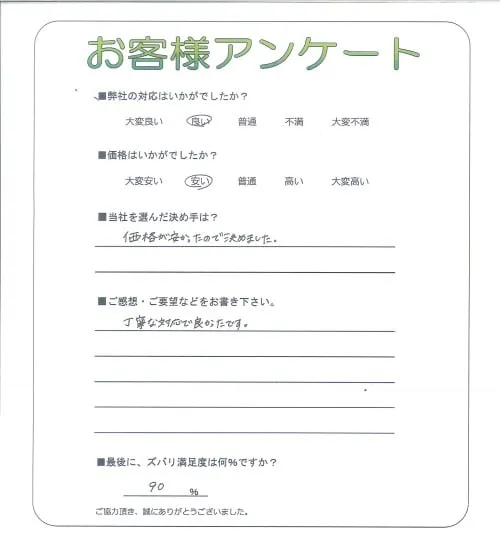 お客様アンケート
■弊社の対応はいかがでしたか？
大変良い 良い 普通 不満 大変不満
■価格はいかがでしたか？
大変安い 安い 普通 高い 大変高い
■当社を選んだ決め手は？
価格が安かったので決めました。
■ご感想・ご要望などをお書き下さい。
丁寧な対応で良かたです。
■最後に、ズバリ満足度は何%ですか？
90 %
ご協力頂き、誠にありがとうございました。